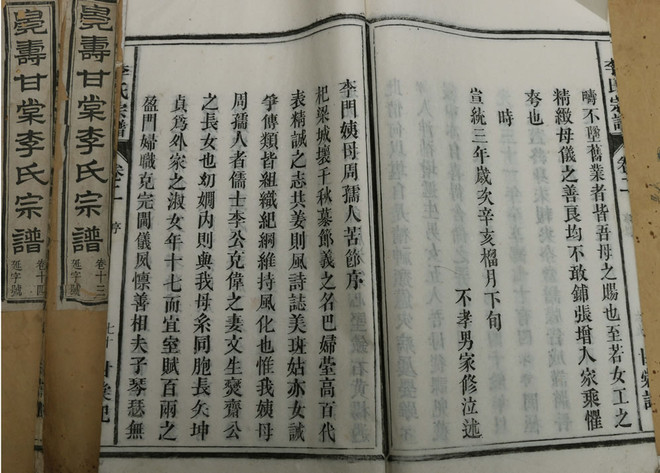 疇不墜舊業者皆吾母之賜也至若女工之
精緻母儀之善良均不敢鋪張增入家乘懼
夸也
時
宣統三年歲次辛亥榴月下旬
不孝男家修泣述
李門姨母周孺人苦節序
杞梁城壞千秋慕節義之名巴婦臺高百代
表精誠之志共姜則風詩誌美班姑亦女誡
爭傳類皆組織紀綱維持風化也惟我姨母
周孺人者儒士李公克偉之妻文生燮齋公
之長女也幼嫻內則與我母系同胞長矢坤
貞為外家之淑女年十七而宜室賦百兩之
盈門婦職克完閫儀夙懍善相夫子琴瑟無
李氏宗譜
卷二
序
七十
甘棠記
李氏宗譜
卷二
甘棠記
壽甘棠李氏宗譜
卷十三
延字號
壽甘棠李氏宗譜
卷十四
延字號